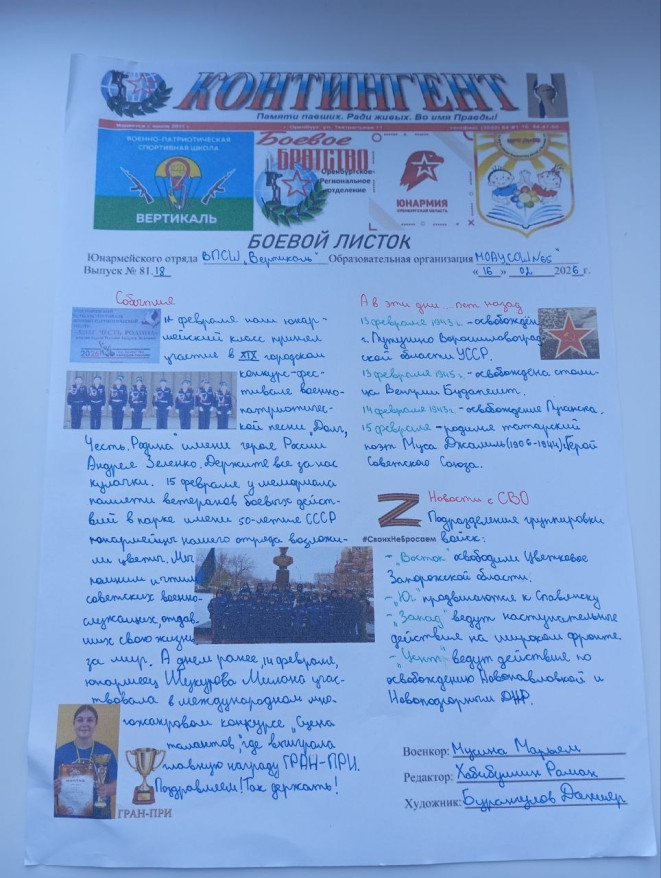 КОНТИНГЕНТ
Памяти павших. Ради живых. Во имя Правды!
ВОЕННО-ПАТРИОТИЧЕСКАЯ
СПОРТИВНАЯ ШКОЛА
ВЕРТИКАЛЬ
Боевое
БРАТСТВО
Оренбургское
Региональное
отделение
ЮНАРМИЯ
ОРЕНБУРГСКАЯ ОБЛАСТЬ
БОЕВОЙ ЛИСТОК
Юнармейского отряда ВПСШ "Вертикаль" Образовательная организация МОАУ СОШ №65
Выпуск № 81.18 «16» 02 2026 г.
События
14 февраля наш юнар-
мейский класс принял
участие в XIX городском
конкурсе-фес-
тивале военно-
патриотичес-
кой песни „Долг,
Честь. Родина" имени героя России
Андрея Зеленко. Держите все за нас
кулачки. 15 февраля у мемориала
памяти ветеранов боевых дейст-
вий в парке имени 50-летие СССР
юнармейцы нашего отряда возложи-
ли цветы. Мы
помним и чтим
советских военно-
служащих, отдав-
ших свою жизнь
за мир. А днем ранее, 14 февраля,
юнармеец Шукурова Милана учас-
твовала в международном мно-
гожанровом конкурсе „Сцена
талантов", где выиграла
главную награду ГРАН-ПРИ.
Поздравляем! Так держать!
ГРАН-ПРИ
А в эти дни ... лет назад
13 февраля 1943 г. - освобожден
г. Лутугино Ворошиловоград-
ской области УССР.
13 февраля 1945 г. - освобождена столи-
ца Венгрии Будапешт.
14 февраля 1943 г. - освобождение Луганска.
15 февраля - родился татарский
поэт Муса Джалиль (1906-1944), Герой
Советского Союза.
Новости с СВО
#СвоихНеБросаем
Подразделения группировки
войск:
- „Восток" освободили Цветковое
Запорожской области.
- „Юг" продвигаются к Славянску
- „Запад" ведут наступательные
действие на широком фронте.
- „Центр" ведут действие по
освобождению Новопавловкой и
Новоподгорным ДНР.
Военкор: Мусина Марьям
Редактор: Хабибуллин Раман
Художник: Буранкулов Данияр